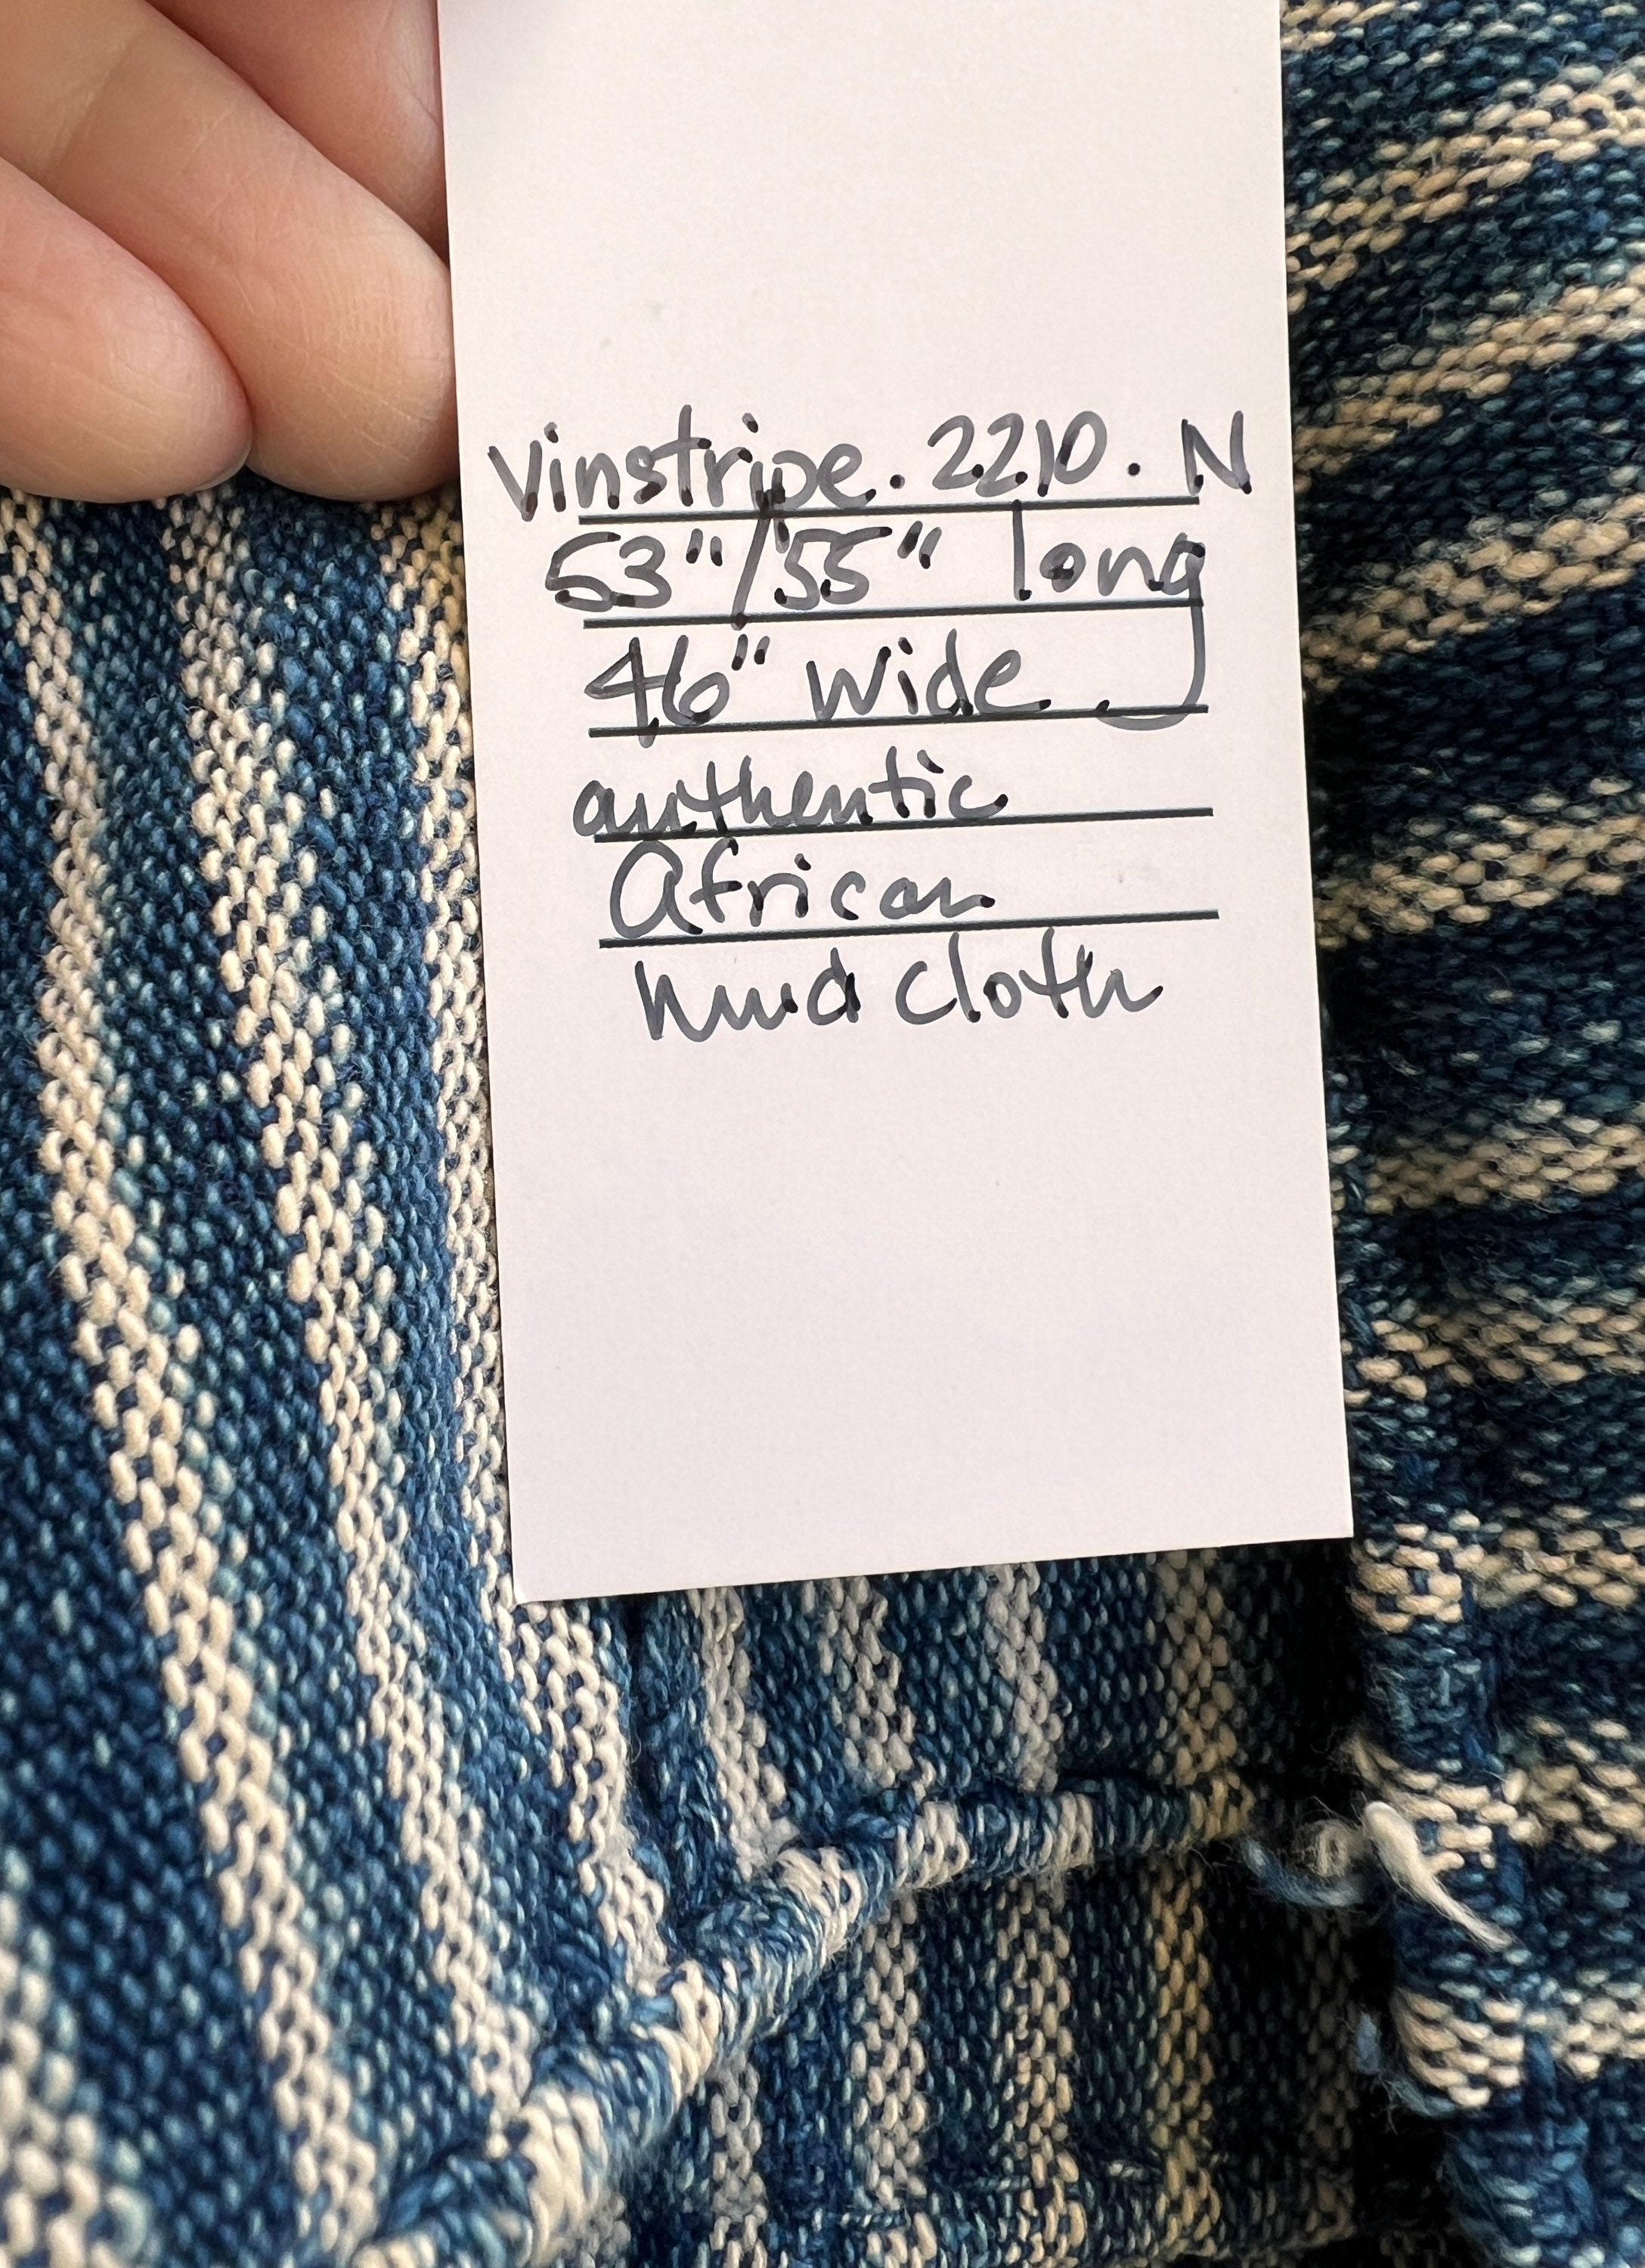 Vinstripe. 2210. N
53"/55" long
46" wide
authentic
African
mud cloth